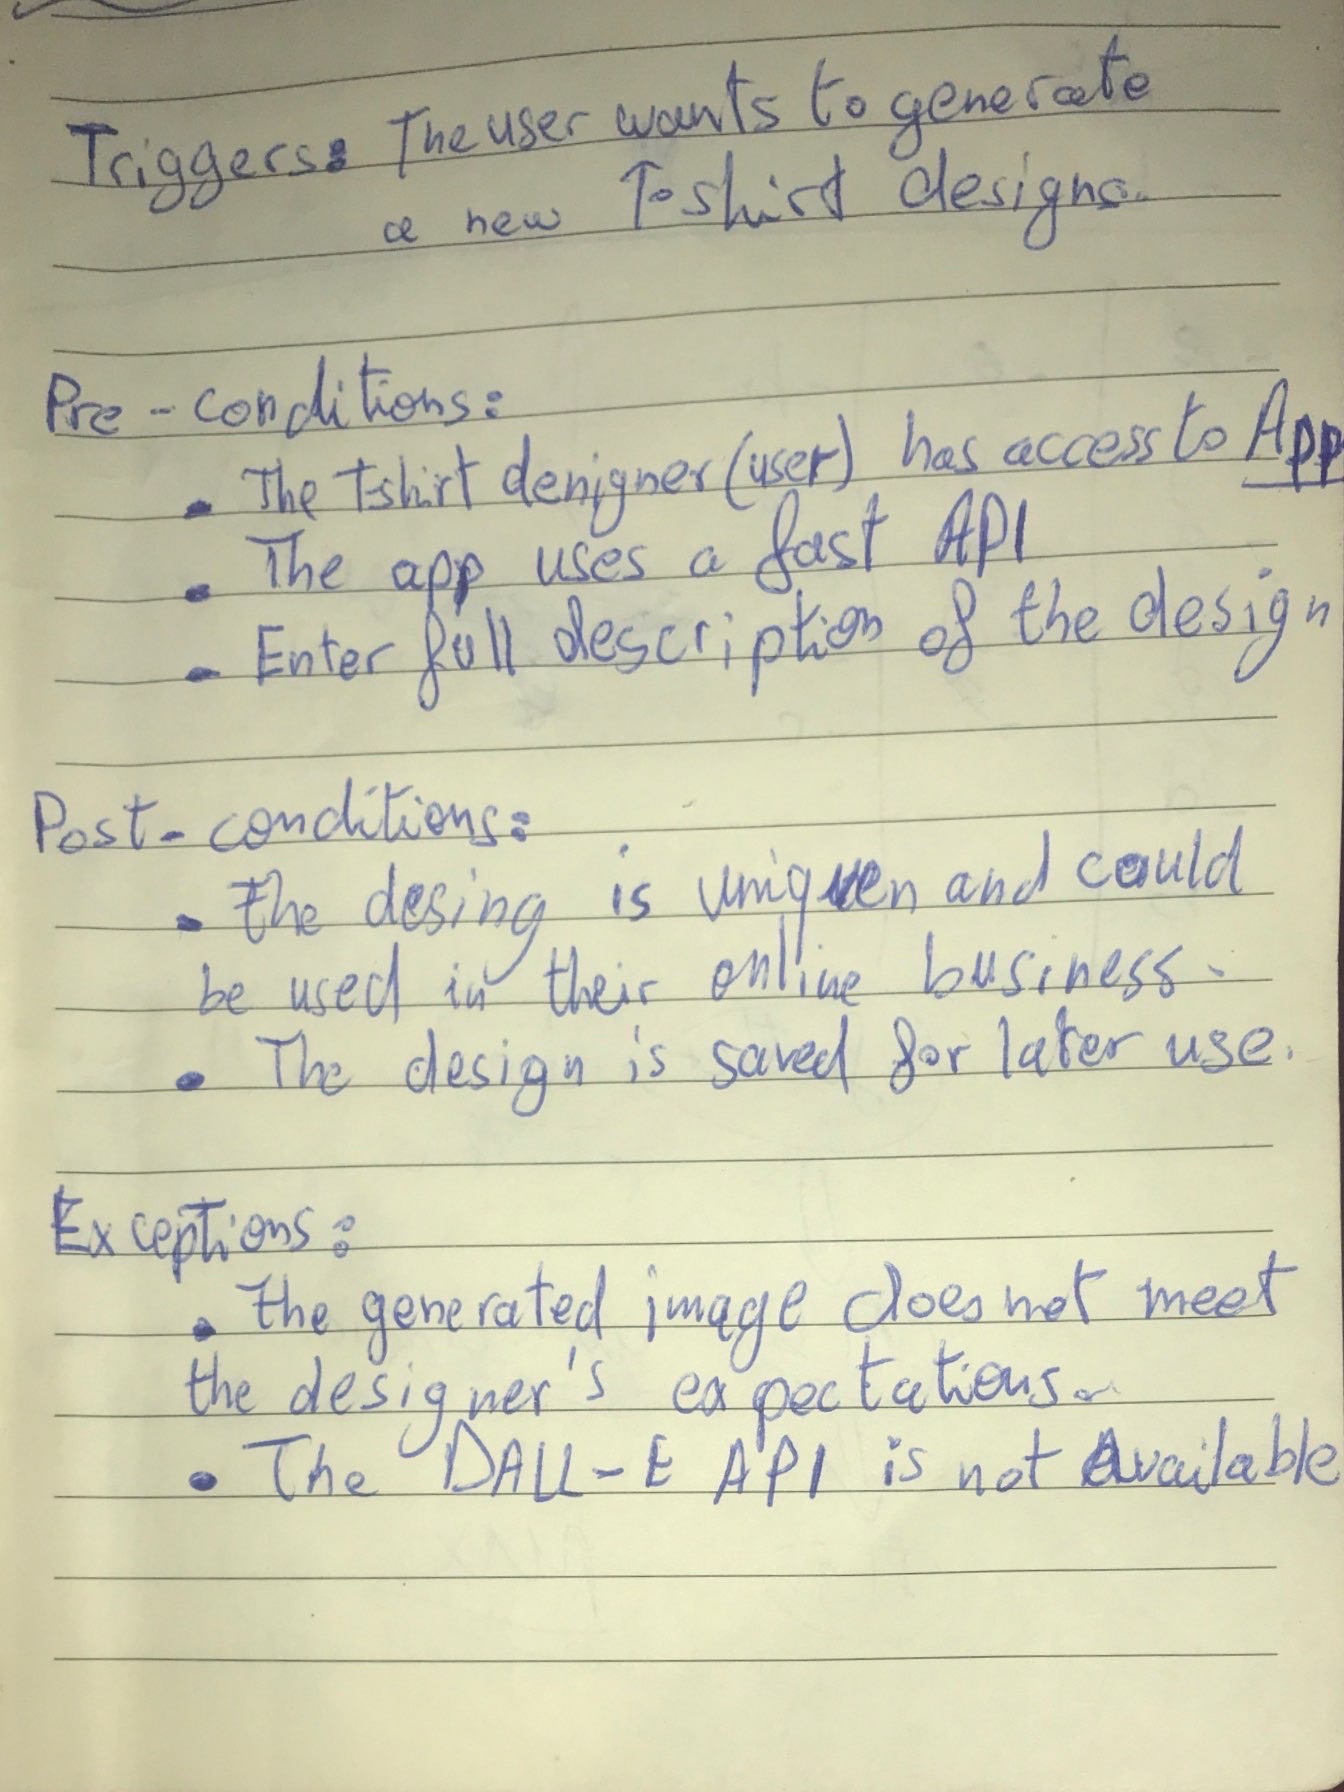 Triggers: The user wants to generate
a new T-shirt designs.
Pre-conditions:
• The t-shirt denigner (user) has access to App
• The app uses a fast API
• Enter full description of the design
Post-conditions:
• the desing is uniquen and could
be used in their online business.
• The design is saved for later use.
Exceptions:
• the generated image does not meet
the designer's expectations.
• The DALL-E API is not Available